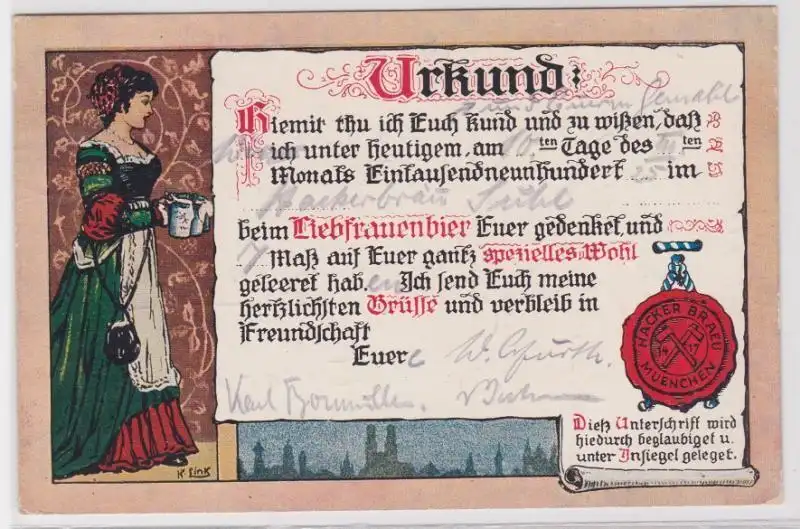 Urkund:
Hiemit thu ich Euch kund und zu wißen, daß
ich unter heutigem, am 10 ten Tage des III ten
Monats Eintausendneunhundert 25 im
Hackerbräu Suhl
beim Liebfrauenbier Euer gedenket, und
7 Maß auf Euer gantz spezielles Wohl
geleeret hab en Ich send Euch meine
hertzlichsten Grüsse und verbleib in
Freundschaft
Euer e
Karl
HACKER BRAEU
14 17
MUENCHEN
Dieß Unterschrift wird
hiedurch beglaubiget u.
unter Insiegel geleget.
K. Link